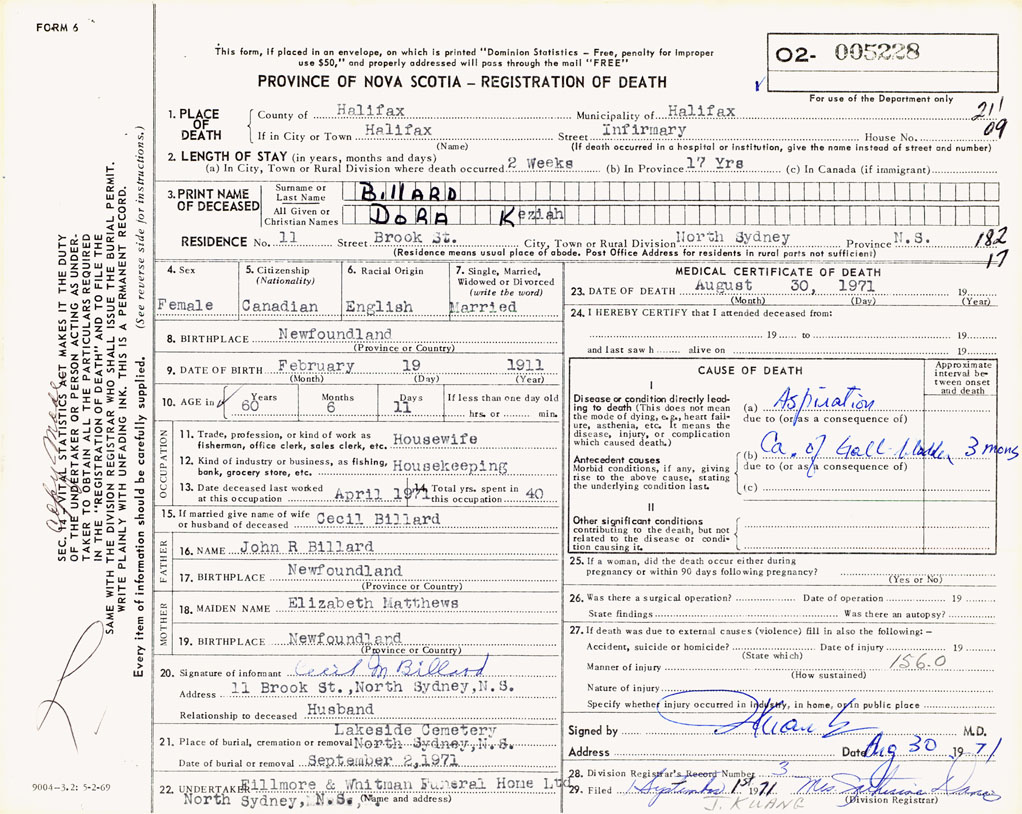 FORM 6
This form, if placed in an envelope, on which is printed "Dominion Statistics – Free, penalty for improper
use $50," and properly addressed will pass through the mail "FREE"
PROVINCE OF NOVA SCOTIA – REGISTRATION OF DEATH
02- 005228
For use of the Department only
21'
09
1. PLACE OF DEATH
County of Halifax Municipality of Halifax
If in City or Town Halifax Street Infirmary House No.
(Name) (If death occurred in a hospital or institution, give the name instead of street and number)
2. LENGTH OF STAY (in years, months and days)
(a) In City, Town or Rural Division where death occurred 2 Weeks (b) In Province 17 Yrs (c) In Canada (if immigrant)
3. PRINT NAME OF DECEASED
Surname or Last Name BillARD
All Given or Christian Names DORA Keziah
RESIDENCE No. 11 Street Brook St. City, Town or Rural Division North Sydney Province N.S.
(Residence means usual place of abode. Post Office Address for residents in rural parts not sufficient)
182
17
4. Sex
Female
5. Citizenship (Nationality)
Canadian
6. Racial Origin
English
7. Single, Married, Widowed or Divorced (write the word)
Married
8. BIRTHPLACE Newfoundland
(Province or Country)
9. DATE OF BIRTH February 19 1911
(Month) (Day) (Year)
10. AGE in Years Months Days If less than one day old
60 6 11 hrs. or min.
OCCUPATION
11. Trade, profession, or kind of work as fisherman, office clerk, sales clerk, etc. Housewife
12. Kind of industry or business, as fishing, bank, grocery store, etc. Housekeeping
13. Date deceased last worked at this occupation April 1971
14. Total yrs. spent in this occupation 40
15. If married give name of wife or husband of deceased Cecil Billard
FATHER
16. NAME John R Billard
17. BIRTHPLACE Newfoundland
(Province or Country)
MOTHER
18. MAIDEN NAME Elizabeth Matthews
19. BIRTHPLACE Newfoundland
(Province or Country)
20. Signature of informant Cecil M Billard
Address 11 Brook St.,North Sydney,N.S.
Relationship to deceased Husband
Lakeside Cemetery
21. Place of burial, cremation or removal North Sydney,N.S.
Date of burial or removal September 2,1971
22. UNDERTAKER Fillmore & Whitman Funeral Home Ltd
North Sydney, N.S. (Name and address)
MEDICAL CERTIFICATE OF DEATH
23. DATE OF DEATH August 30, 1971 19
(Month) (Day) (Year)
24. I HEREBY CERTIFY that I attended deceased from:
19 to 19
and last saw h alive on 19
CAUSE OF DEATH
Approximate interval between onset and death
I
Disease or condition directly leading to death (This does not mean the mode of dying, e.g., heart failure, asthenia, etc. It means the disease, injury, or complication which caused death.)
(a) Aspiration
due to (or as a consequence of)
Antecedent causes
Morbid conditions, if any, giving rise to the above cause, stating the underlying condition last.
(b) Ca. of Gall-bladder 3 mons
due to (or as a consequence of)
(c)
II
Other significant conditions
contributing to the death, but not related to the disease or condition causing it.
25. If a woman, did the death occur either during pregnancy or within 90 days following pregnancy?
(Yes or No)
26. Was there a surgical operation? Date of operation 19
State findings Was there an autopsy?
27. If death was due to external causes (violence) fill in also the following: –
Accident, suicide or homicide? Date of injury 19
(State which)
156.0
Manner of injury
(How sustained)
Nature of injury
Specify whether injury occurred in Industry, in home, or in public place
Signed by M.D.
Address Date Aug 30 1971
28. Division Registrar's Record Number 3
29. Filed September 1st 1971 Mrs
J. KUANG (Division Registrar)
SEC. 14 VITAL STATISTICS ACT MAKES IT THE DUTY
OF THE UNDERTAKER OR PERSON ACTING AS UNDER-
TAKER TO OBTAIN ALL THE PARTICULARS REQUIRED
IN THE "REGISTRATION OF DEATH" AND TO FILE THE
SAME WITH THE DIVISION REGISTRAR WHO SHALL ISSUE THE BURIAL PERMIT.
WRITE PLAINLY WITH UNFADING INK. THIS IS A PERMANENT RECORD.
Every item of information should be carefully supplied. (See reverse side for instructions.)
9004–3.2: 5-2-69